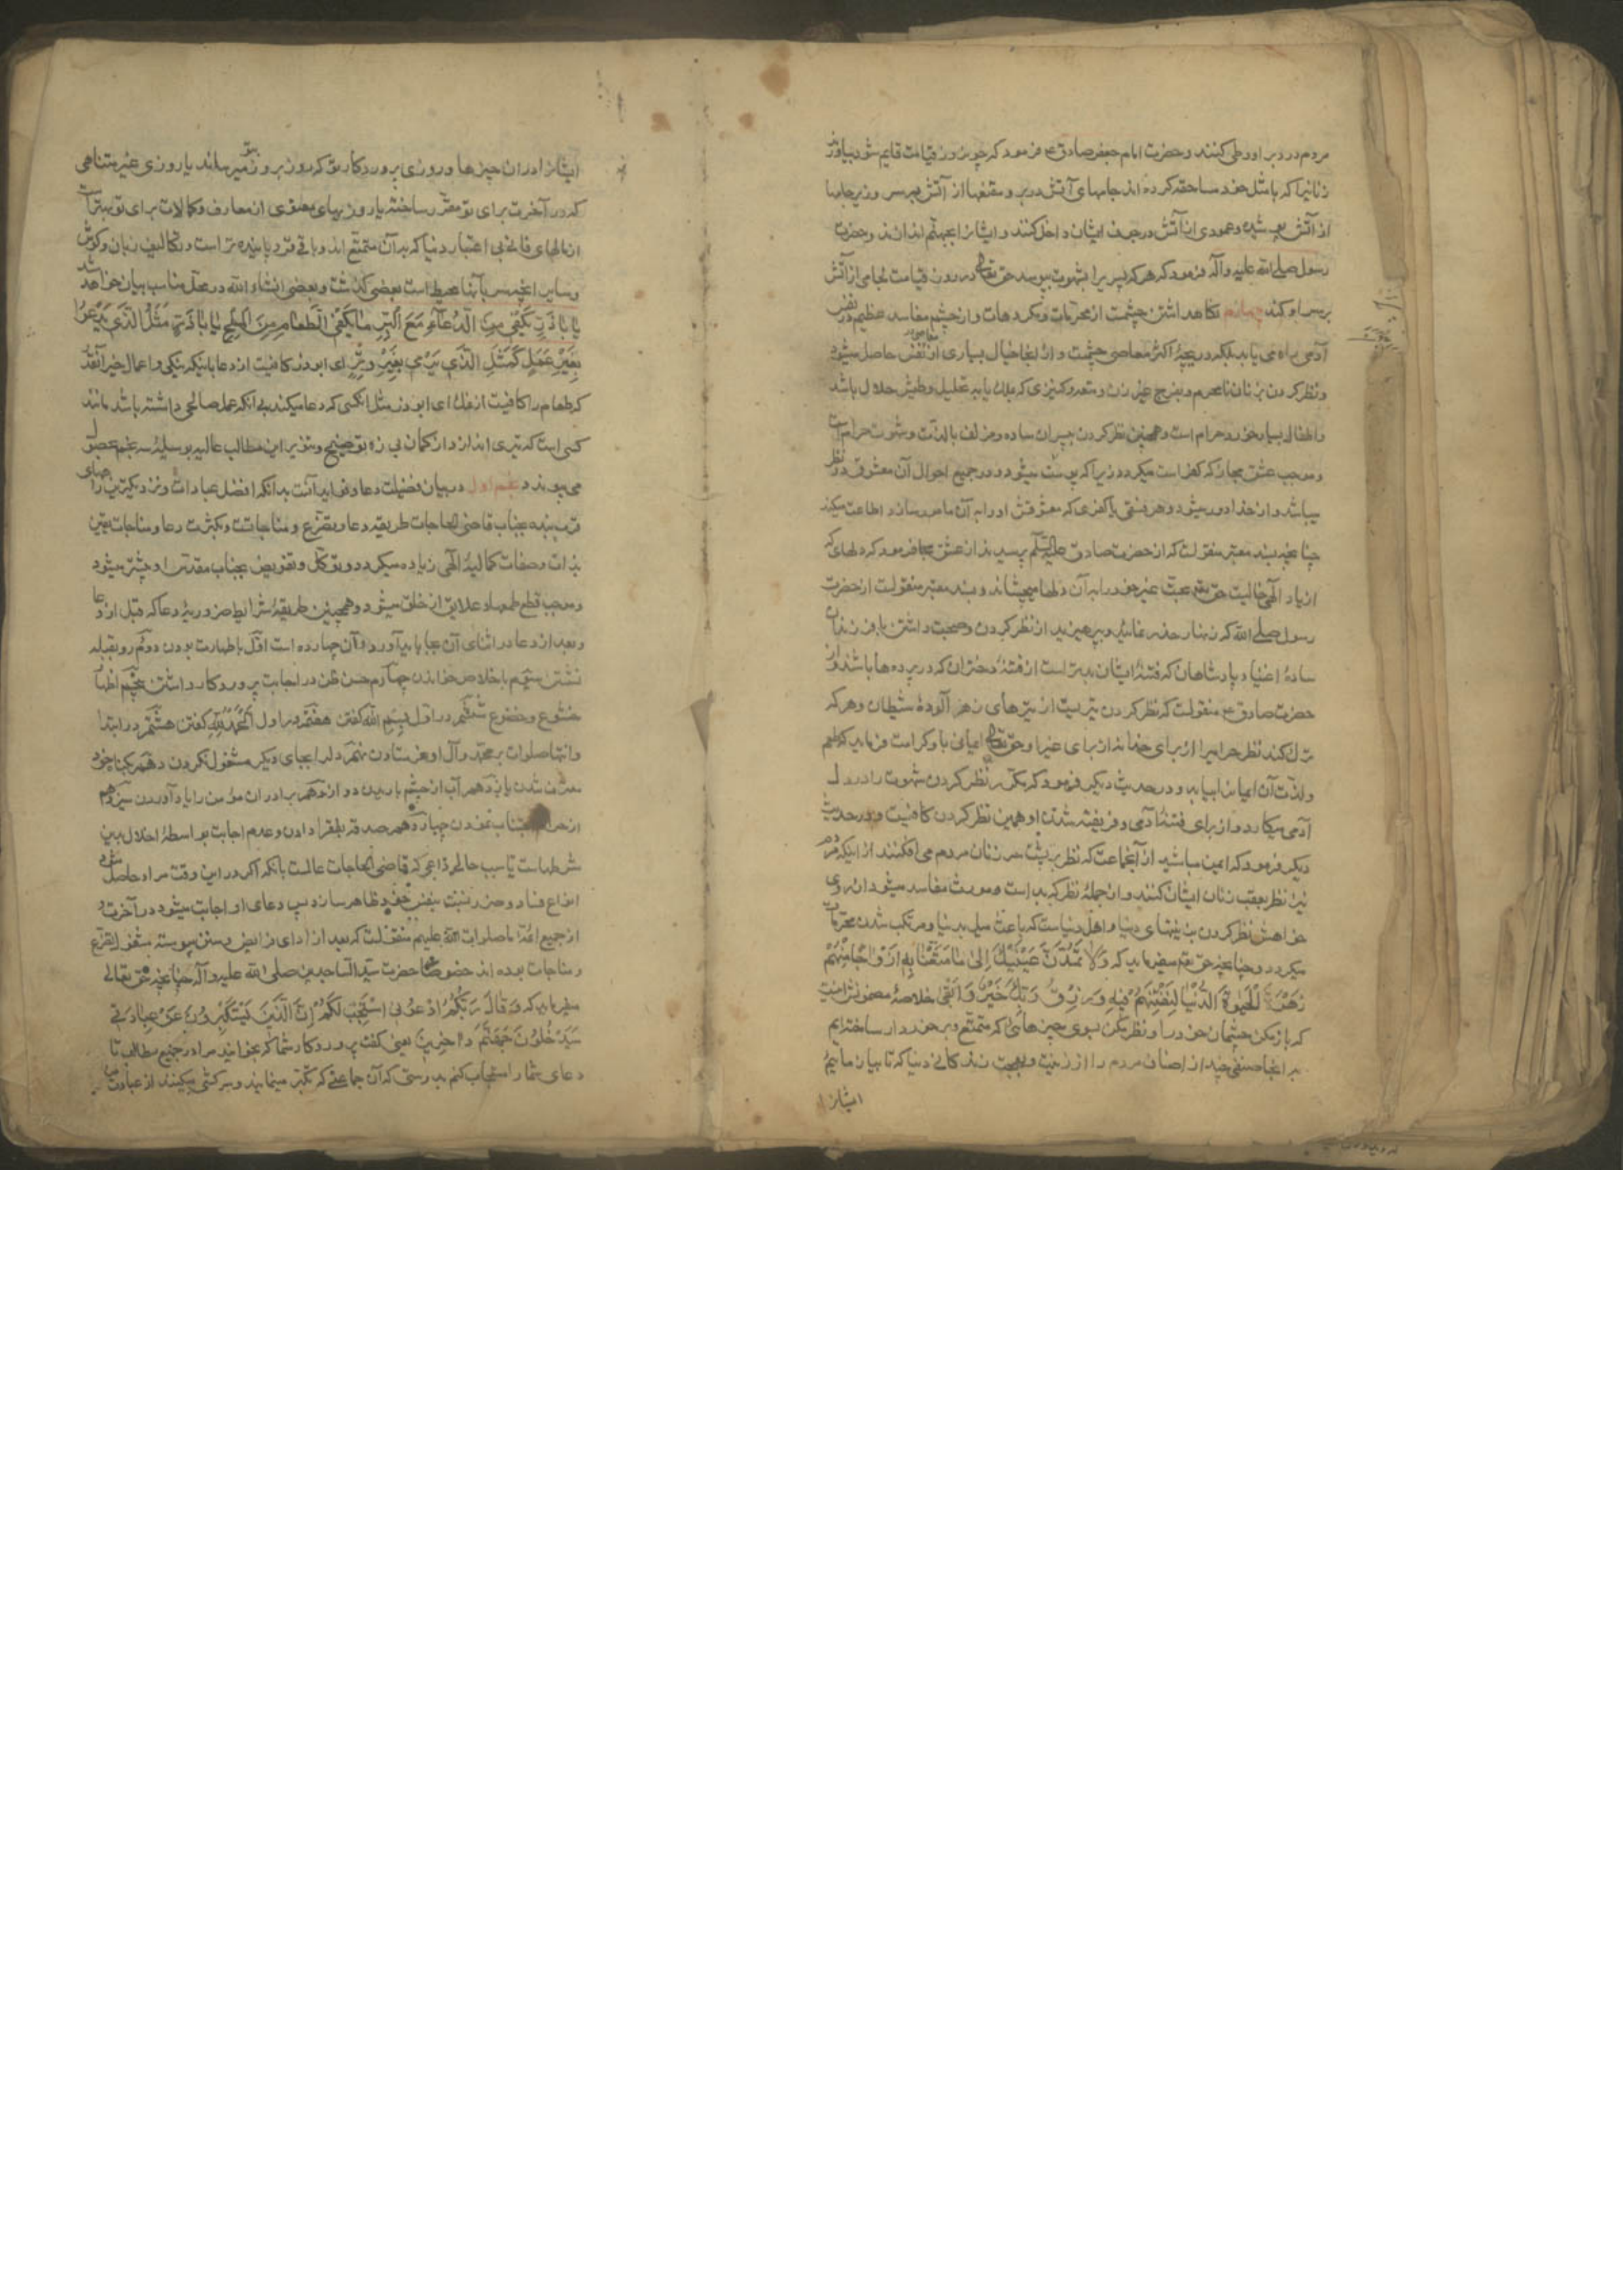 مردم در دبر او وطی کنند و حضرت امام جعفر صادق ع فرمود که چون روز قیامت قایم شود بیاورند
زنانیرا که با مثل خود مساحقه کرده اند جامهای آتش در بر و مقنعها از آتش بر سر و زیر جامها
از آتش پوشیده و عمودی از آتش در جوف ایشان داخل کنند و ایشانرا بجهنم اندازند و حضرت
رسول صلی الله علیه وآله فرمود که هر که پسریرا بشهوت ببوسد حق تعالی در روز قیامت لجامی از آتش
بر سر او کند چهارم نگاهداشتن چشمست از محرمات و مکروهات و از چشم مفاسد عظیم در نفس
آدمی راه می یابد بلکه دریچهٔ اکثر معاصی چشمست و از اینجا خیال بسیاری از معاصی در نفس حاصل میشود
و نظر کردن بزنان نامحرم و بفرج غیر زن و متعه و کنیزی که بملک یا به تحلیل وطیش حلال باشد
و اطفال بسیار خورد حرام است و همچنین نظر کردن بپسران ساده و مزلف با لذت و شهوت حرام است
و موجب عشق مجاز که کفر است میگردد زیرا که بت پرست میشود و در جمیع احوال آن معشوق در نظر
میباشد و از خدا دور میشود و هر فسقی یا کفری که معشوقش او را به آن مامور سازد اطاعت میکند
چنانچه بسند معتبر منقولست که از حضرت صادق علیه السلم پرسیدند از عشق مجاز فرمود که دلهای که
از یاد الهی خالیست حق تعالی محبت غیر خود را به آن دلها میچشاند و بسند معتبر منقولست از حضرت
رسول صلی الله که زنهار حذر نمائید و بپرهیزید از نظر کردن و صحبت داشتن با فرزندان
سادهٔ اغنیا و پادشاهان که فتنهٔ ایشان بدتر است از فتنهٔ دختران که در پرده ها باشند و از
حضرت صادق ع منقولست که نظر کردن تیریست از تیرهای زهر آلودهٔ شیطان و هر که
ترک کند نظر حرامرا از برای خدا نه از برای غیر او حق تعالی ایمانی باو کرامت فرماید که طعم
و لذت آن ایمانرا بیابد و در حدیث دیگر فرمود که مکرر نظر کردن شهوت را در دل
آدمی میکارد و از برای فتنهٔ آدمی و فریفته شدن او همین نظر کردن کافیست و در حدیث
دیگر فرمود که ایمن میباشید از آنجماعت که نظر بر پشت سر زنان مردم می افکنند از اینکه مردم
نیز نظر بعقب زنان ایشان کنند و از جملهٔ نظر که بد است و مورث مفاسد میشود از روی
خواهش نظر کردن بزینتهای دنیا و اهل دنیاست که باعث میل بدنیا و مرتکب شدن محرمات
میگردد چنانچه حق تعالی میفرماید که وَلَا تَمُدَّنَّ عَيْنَيْكَ إِلَىٰ مَا مَتَّعْنَا بِهِ أَزْوَاجًا مِنْهُمْ
زَهْرَةَ الْحَيٰوةِ الدُّنْيَا لِنَفْتِنَهُمْ فِيهِ وَرِزْقُ رَبِّكَ خَيْرٌ وَأَبْقَىٰ خلاصهٔ مضمونش اینست
که باز مکن چشمان خود را و نظر مکن بسوی چیزهائی که متمتع و برخوردار ساخته ایم
به آنها صنفی چند از اصناف مردم را از زینت و بهجت زندگانی دنیا که تا بیازماییم
ایشانرا
ایشانرا در آن چیزها و روزی پروردگار تو که روز بروز بتو میرساند یا روزی غیر متناهی
که در آخرت برای تو مقرر ساخته یا روزیهای معنوی از معارف و کمالات برای تو بهتر است
از مالهای فانی بی اعتبار دنیا که به آن متمتع اند و باقی تر و پاینده تر است و تکالیف زبان و گوش
و سایر آنچه سر به آنها محیط است بعضی گذشت و بعضی انشاء الله در محل مناسب بیان خواهد شد
يَا بَا ذَرٍّ يَكْفِي مِنَ الدُّعَاءِ مَعَ الْبِرِّ مَا يَكْفِي الطَّعَامَ مِنَ الْمِلْحِ يَا بَا ذَرٍّ مَثَلُ الَّذِي يَدْعُو
بِغَيْرِ عَمَلٍ كَمَثَلِ الَّذِي يَرْمِي بِغَيْرِ وَتَرٍ ای ابو ذر کافیست از دعا با نیکی و اعمال خیر آنقدر
که طعام را کافیست از نمک ای ابو ذر مثل آنکسی که دعا میکند بی آنکه عمل صالحی داشته باشد مانند
کسی است که تیری اندازد از کمان بی زه توضیح و تنویر این مطالب عالیه بوسیلهٔ سه نجم بحصول
می پیوندد نجم اول در بیان فضیلت دعا و فواید آنست بدانکه افضل عبادات و نزدیکترین راههای
قرب بنده بجناب قاضی الحاجات طریقه دعا و تضرع و مناجاتست و بکثرت دعا و مناجات یقین
بذات و صفات کمالیهٔ الهی زیاده میگردد و توکل و تفویض بجناب مقدس او بیشتر میشود
و موجب قطع طمع و علایق از خلق میشود و همچنین طریقهٔ شرایط ضروریهٔ دعا که قبل از دعا
و بعد از دعا در اثنای آن بجا باید آورد و آن چهارده است اول با طهارت بودن دوم رو بقبله
نشستن سیم با خلاص خواندن چهارم حسن ظن در اجابت پروردگار داشتن پنجم اظهار
خشوع و خضوع ششم در اول بسم الله گفتن هفتم در اول الحمد لله گفتن هشتم در ابتدا
و انتها صلوات بر محمد و آل او فرستادن نهم دلرا بجای دیگر مشغول نکردن دهم بگناه خود
معترف شدن یازدهم آب از چشم باریدن دوازدهم برادران مؤمن را یاد آوردن سیزدهم
از حرام اجتناب نمودن چهاردهم صدقه بفقرا دادن و عدم اجابت بواسطهٔ اخلال بدین
شرطهاست یا سبب حال داعی که قاضی الحاجات عالمست بآنکه اگر در این وقت مراد حاصل شود
انواع فساد و ضرر نسبت بنفس خود ظاهر سازد پس دعای او اجابت میشود در آخرت و
از جمیع ائمهٔ ما صلوات الله علیهم منقولست که بعد از ادای فرایض و سنن پیوسته مشغول تضرع
و مناجات بوده اند خصوصا حضرت سید الساجدین صلی الله علیه وآله چنانچه حق تعالی
میفرماید که وَقَالَ رَبُّكُمُ ادْعُونِي أَسْتَجِبْ لَكُمْ إِنَّ الَّذِينَ يَسْتَكْبِرُونَ عَنْ عِبَادَتِي
سَيَدْخُلُونَ جَهَنَّمَ دَاخِرِينَ یعنی گفت پروردگار شما که بخوانید مرا در جمیع مطالب تا
دعای شما را مستجاب کنم بدرستی که آن جماعتی که تکبر مینمایند و سرکشی میکنند از عبادت من